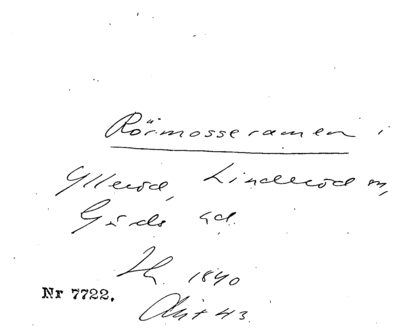 Rörmosseramen i
Ylleröd, Linderöd sn,
Gärds hd.
Lh. 1890
Nr 7722.
Akt 43.